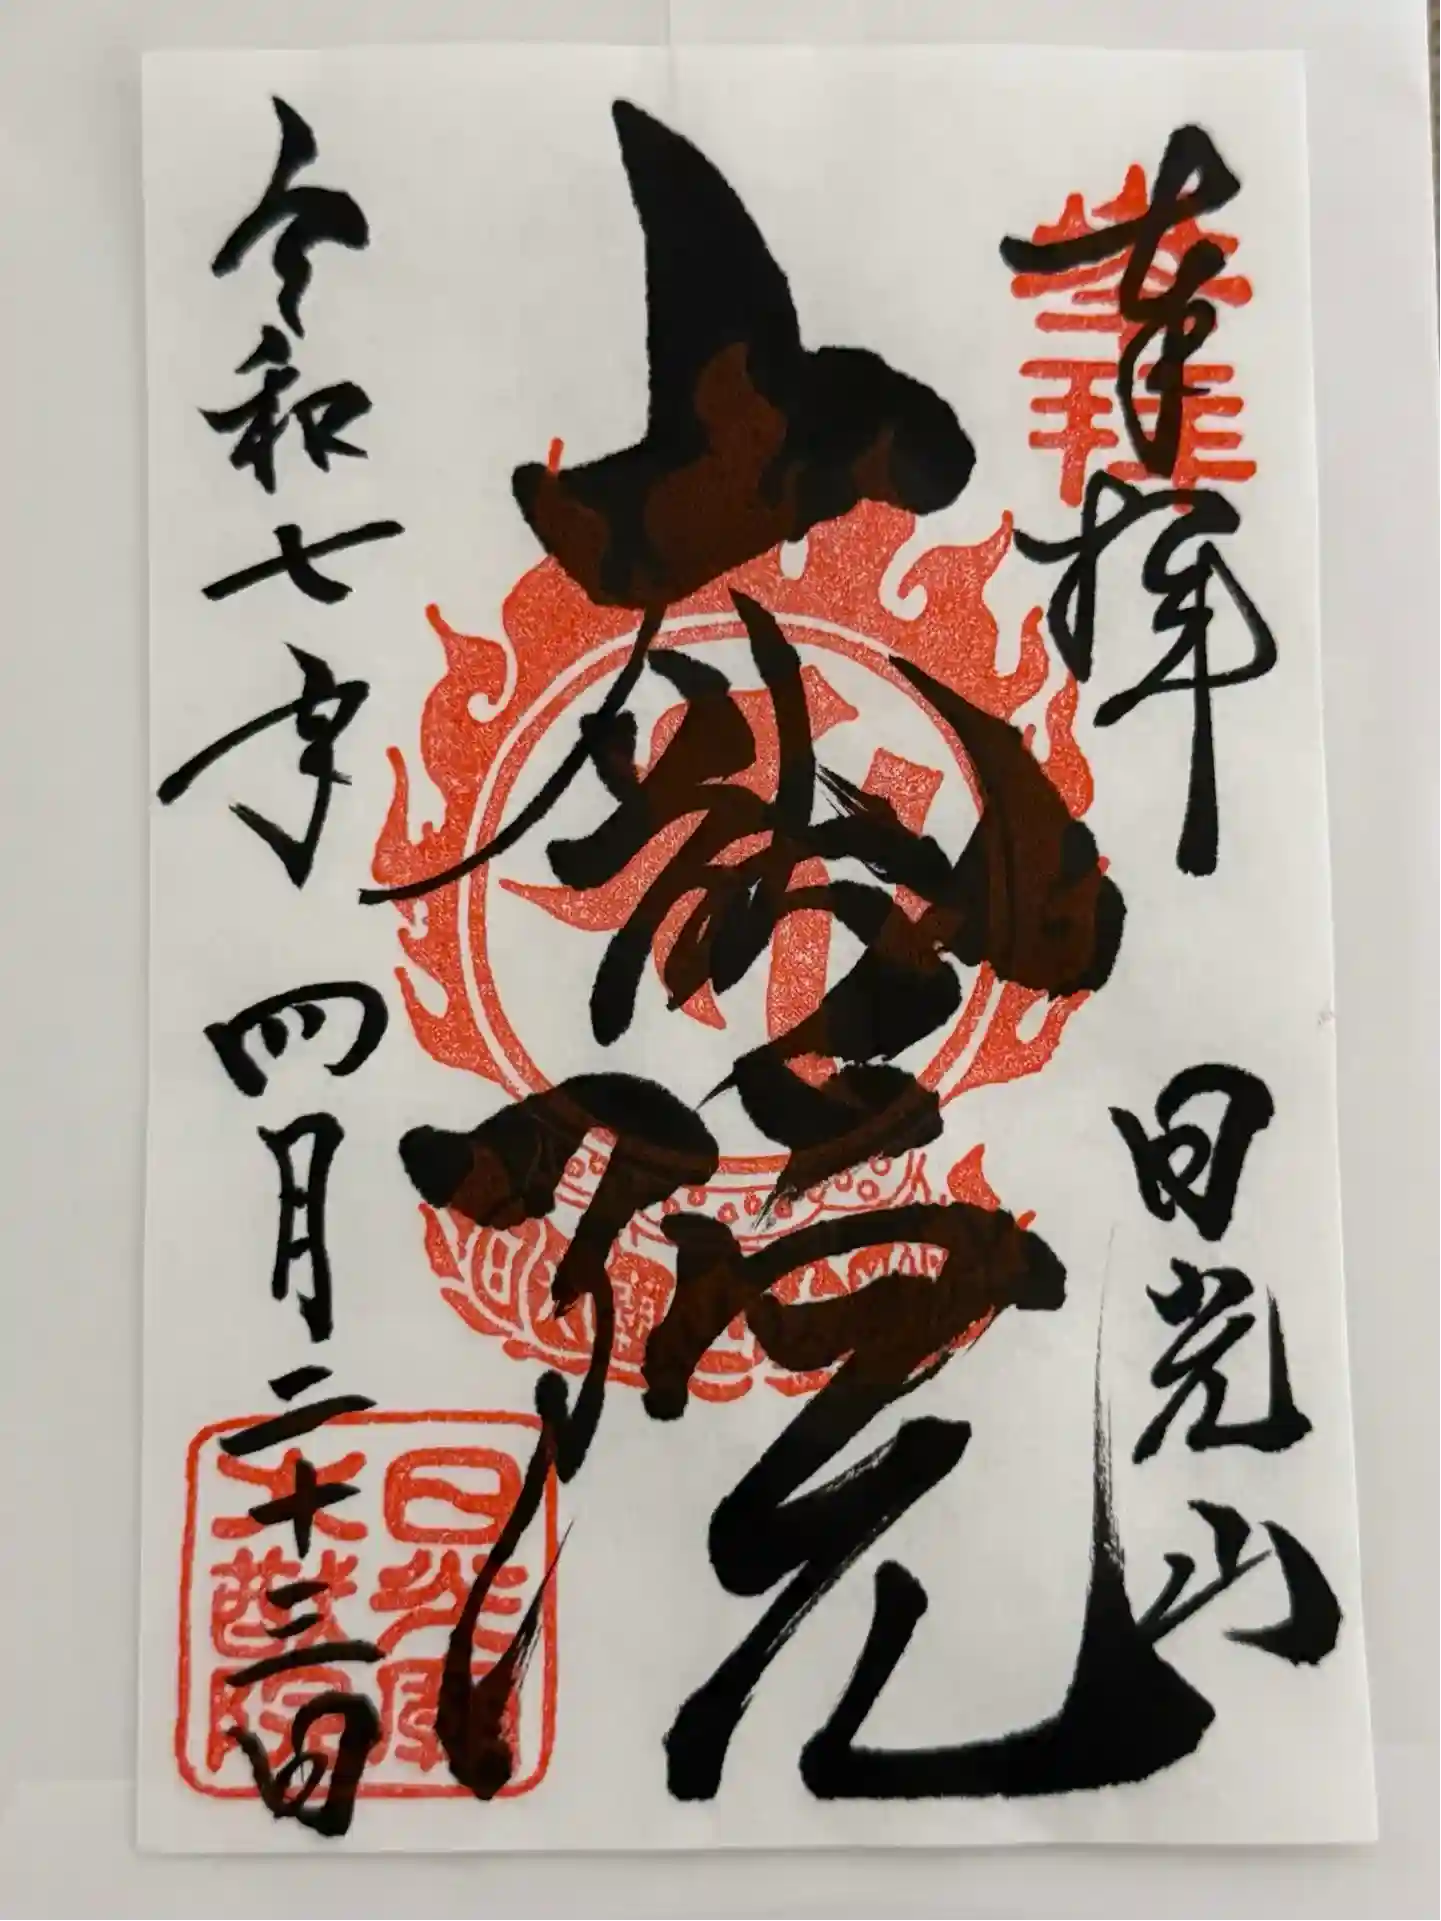 奉拝
日光山
大猷院
令和七年四月二十三日
日光山
大猷院